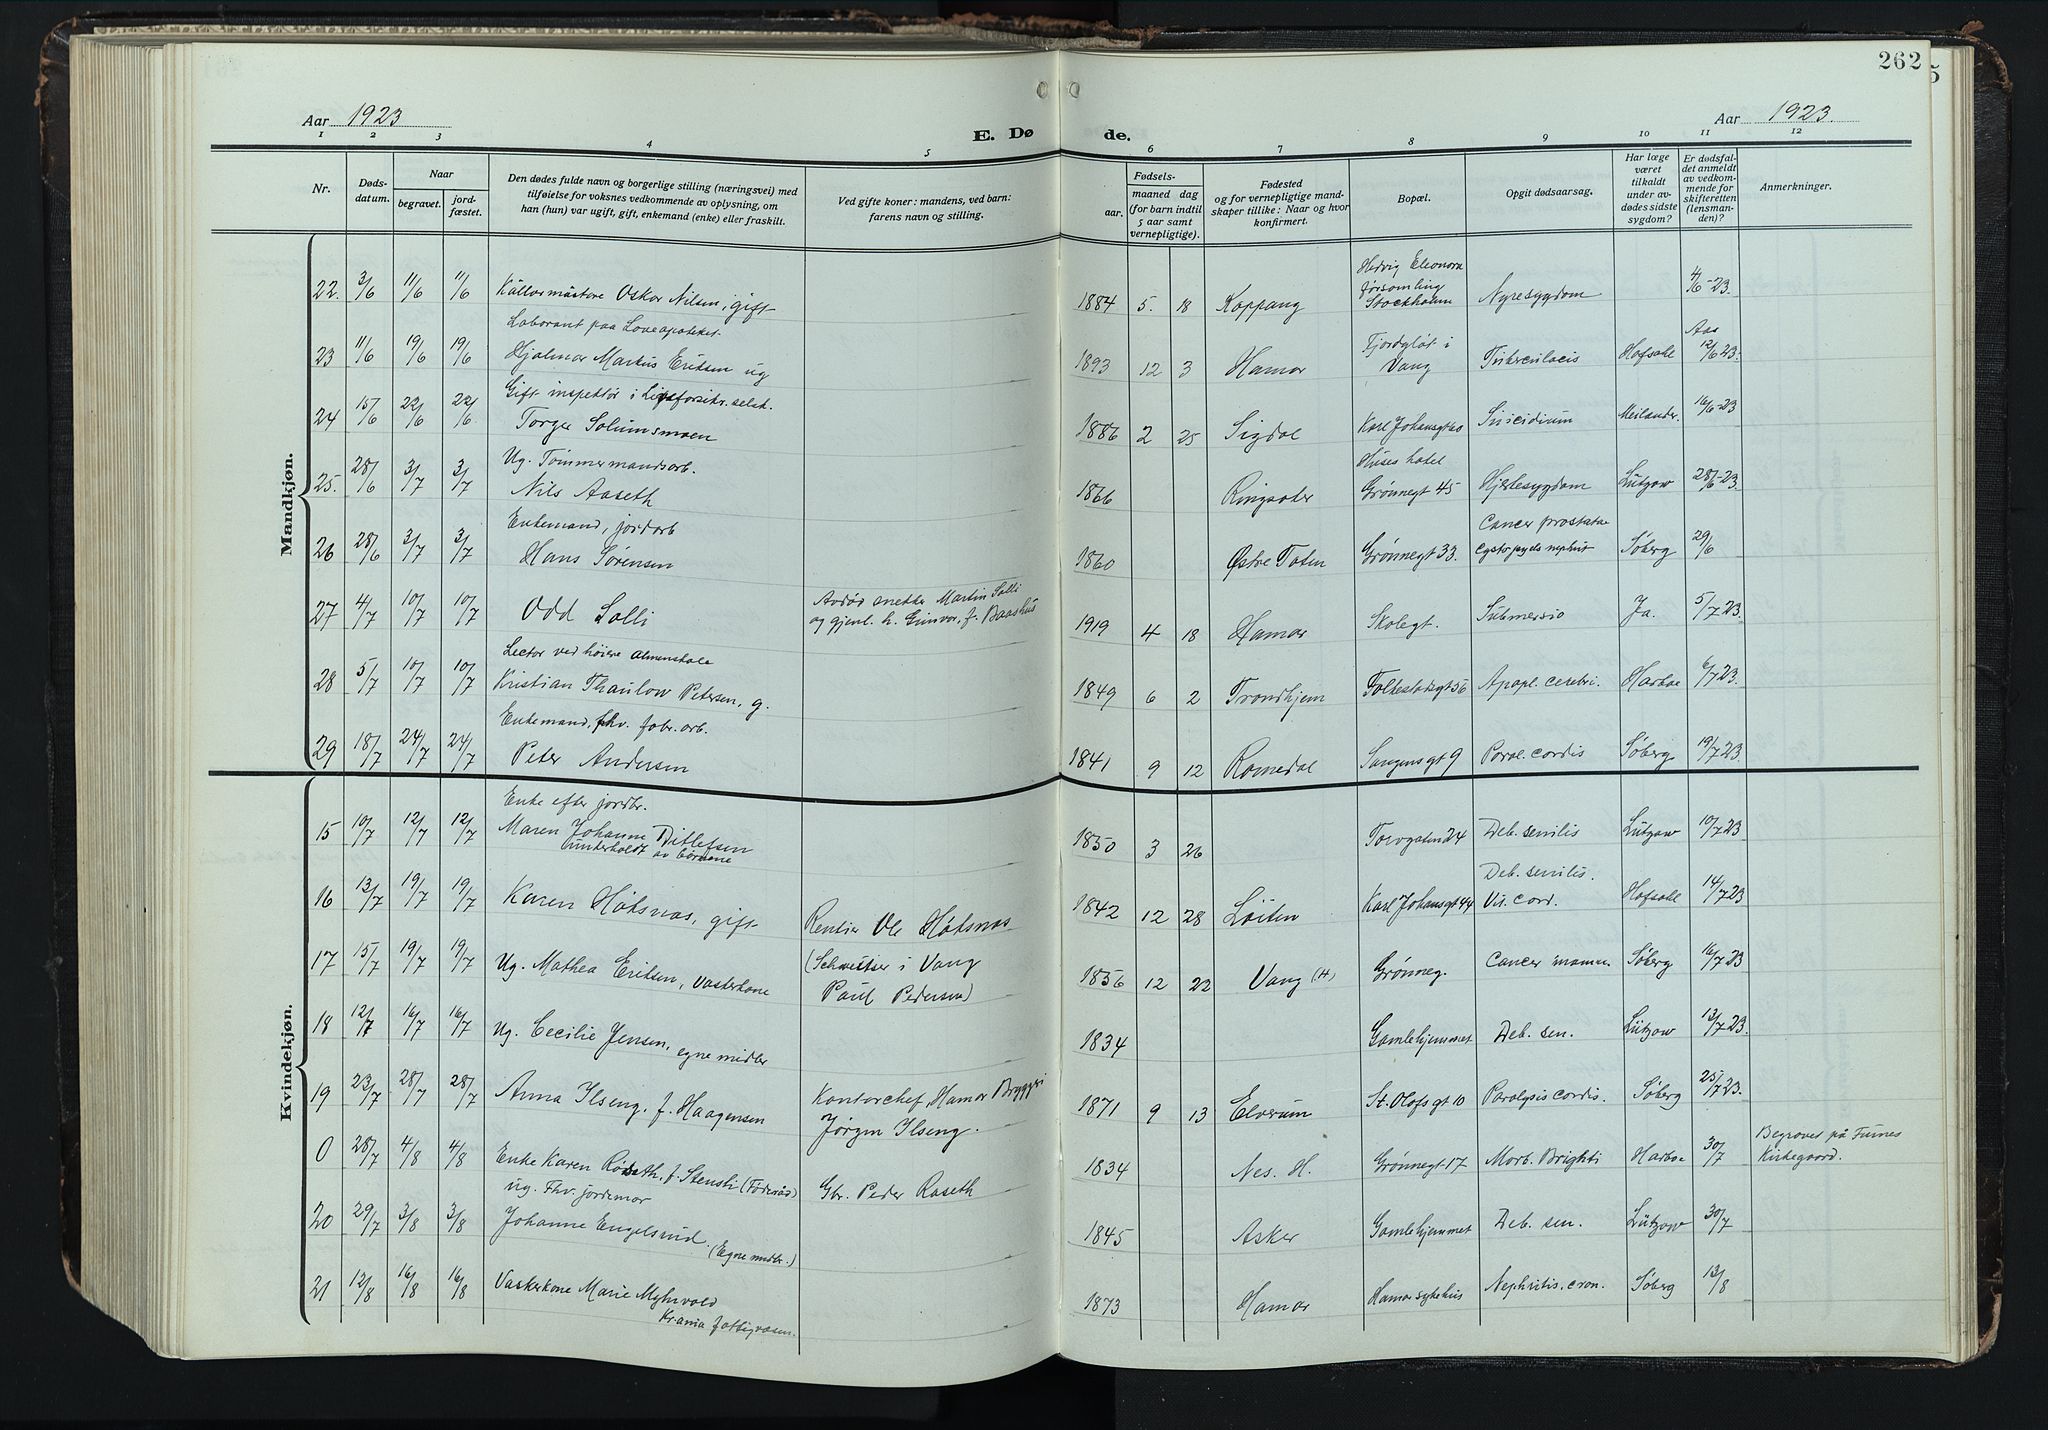 262
Aar 1923
E. Døde.
Aar 1923.
1 2 3 4 5 6 7 8 9 10 11 12
Nr.
Døds-datum.
Naar
begravet.
jord-fæstet.
Den dødes fulde navn og borgerlige stilling (næringsvei) med
tilføielse for voksnes vedkommende av oplysning, om
han (hun) var ugift, gift, enkemand (enke) eller fraskilt.
Ved gifte koner: mandens, ved barn:
farens navn og stilling.
Fødsels-
aar.
maaned dag
(for barn indtil
5 aar samt
vernepligtige).
Fødested
og for vernepligtige mand-
skaper tillike: Naar og hvor
konfirmert.
Bopæl.
Opgit dødsaarsag.
Har læge
været
tilkaldt
under av-
dødes sidste
sygdom?
Er dødsfal-
det anmeldt
av vedkom-
mende for
skifteretten
(lensman-
den)?
Anmerkninger.
Mandkjøn.
22. 3/6 11/6 11/6 Källarmästare Oskar Nilsen, gift 1884 5. 18 Koppang Hedvig Eleonora församling Stockholm Nyresygdom 4/6-23.
23 11/6 19/6 19/6 Laborant paa Løveapoteket. Hjalmar Markus Eriksen ug 1893 12 3 Hamar Fjordgløt i Vang Tuberculosis Hofsahl Aas 12/6 23.
24 15/6 22/6 22/6 Gift inspektør i Livsforsikr.selsk. Torger Solumsmoen 1886 2 25 Sigdal Karl Johansgt Suicidium Meilænder. 16/6-23
25. 28/6 3/7 3/7 Ug. Tømmermandsarb. Nils Aaseth 1866 Ringsaker Huses hotel Grønnegt 45 Hjertesygdom Lützow 28/6-23.
26 28/6 3/7 3/7 Enkemand, jordarb Hans Sørensen 1860 Østre Toten Grønnegt 33. Cancer prostatae Søberg 29/6
27 4/7 10/7 10/7 Odd Solli Avdød snekker Martin Solli og gjenl. h. Gunvor, f. Baashus 1919 4 18 Hamar Skolegt. Submersio Ja. 5/7 23.
28 5/7 10/7 10/7 Lector ved høiere almenskole Kristian Thaulow Petersen, g. 1849 6 2 Trondhjem Folkestadsgt 56 Apopl. cerebri. Harboe 6/7 23.
29 18/7 24/7 24/7 Enkemand, fhv. fabr. arb. Peter Andersen 1841 9 12 Romedal Sangensgt 9 Paral. cordis Søberg 19/7 23.
Kvindekjøn.
15 10/7 12/7 12/7 Enke efter jordbr. Maren Johanne Ditlefsen underholdt av børnene 1850 3 26 Torvgaten 24 Deb. senilis Lützow 10/7 23
16 13/7 19/7 19/7 Karen Høtsnæs, gift Rentier Ole Høtsnæs 1842 12 28 Løiten Karl Johansgt 44 Deb. senilis. Vit. cord. Hofsahl 14/7 23
17 15/7 19/7 19/7 Ug. Mathea Eriksen, vaskekone (Schweitser i Vang Paul Pedersen) 1856 12 22 Vang (H) Grønneg. Cancer mamm. Søberg 16/7 23
18 12/7 16/7 16/7 Ug. Cecilie Jensen, egne midler 1834 Gamlehjemmet Deb. sen. Lützow 13/7 23.
19 23/7 28/7 28/7 Anna Ilseng, f. Haagensen Kontorchef Hamar Bryggeri Jørgen Ilseng. 1871 9 13 Elverum St. Olofsgt 10 Paralysis cordis. Søberg 25/7 23.
0 28/7 4/8 4/8 Enke Karen Røseth, f. Stensli (Føderåd) Gbr. Peder Røseth 1834 Nes. H. Grønnegt 17 Morb. Brighti Harboe 30/7 Begravet på Furnes Kirkegaard.
20 29/7 3/8 3/8 ug. Fhv. jordemor Johanne Engelsrud. (Egne midler.) 1845 Asker Gamlehjemmet Deb. sen. Lützow 30/7
21 12/8 16/8 16/8 Vaskekone Marie Myhrvold Kr.ania fattigvæsen. 1873 Hamar Hamar sykehus Nephritis. cron. Søberg 13/8